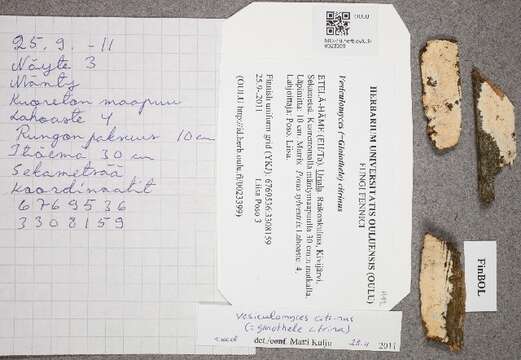 25.9. -11
Näyte 3
Mänty
Kuoreton maapuu
Lahoaste 4
Rungon paksuus 10 cm
Itiöemä 30 cm
Sekametsä
Koordinaatit
6769536
3308159
OULU
HERBARIUM UNIVERSITATIS OULUENSIS (OULU)
FUNGI FENNICI
Vesiculomyces (=Gloiothele) citrinus
ETELÄ-HÄME (EH/Ta). Urjala. Raikonkulma, Kivijärvi.
Sekametsä. Kuorettomalla mäntymaapuulla 30 cm:n matkalla.
Läpimitta: 10 cm. Matrix Pinus sylvestris. Lahoaste 4.
Lahjoittaja: Poso, Liisa.
Finnish uniform grid (YKJ): 6769536:3308159
25.9.-2011 Liisa Poso 3
(OULU http://id.herb.oulu.fi/0023399)
Vesiculomyces citrinus
(= Gloiothele citrina)
det./conf. Matti Kulju 2011
FinBOL